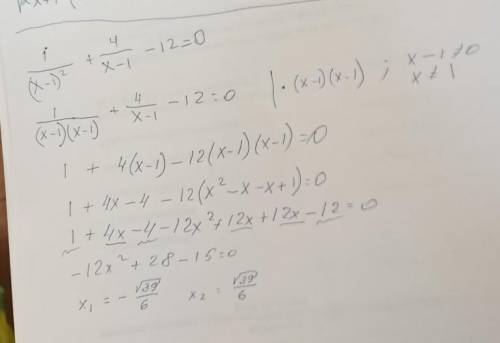 1/(x-1)² + 4/(x-1) - 12 = 0
1/((x-1)(x-1)) + 4/(x-1) - 12 = 0 | · (x-1)(x-1) ; x - 1 ≠ 0
x ≠ 1
1 + 4(x-1) - 12(x-1)(x-1) = 0
1 + 4x - 4 - 12(x² - x - x + 1) = 0
1 + 4x - 4 - 12x² + 12x + 12x - 12 = 0
-12x² + 28 - 15 = 0
x₁ = -√39/6 x₂ = √39/6